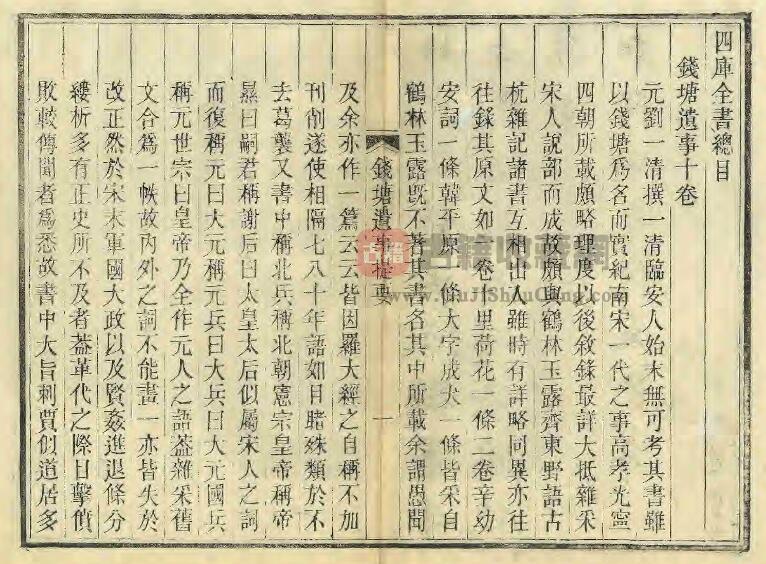 四庫全書總目
錢塘遺事十卷
元劉一清撰一清臨安人始末無可考其書雖
以錢塘爲名而實紀南宋一代之事高孝光寧
四朝所載頗略理度以後敘錄最詳大抵雜采
宋人說部而成故頗與鶴林玉露齊東野語古
杭雜記諸書互相出入雖時有詳略同異亦往
往錄其原文如一卷十里荷花一條二卷辛幼
安詞一條韓平原一條大字成犬一條皆采自
鶴林玉露旣不著其書名其中所載余謂愚聞
錢塘遺事提要
一
及余亦作一篇云云皆因羅大經之自稱不加
刊削遂使相隔七八十年語如目睹殊類於不
去葛龔又書中稱北兵稱北朝憲宗皇帝稱帝
㬎曰嗣君稱謝后曰太皇太后似屬宋人之詞
而復稱元曰大元稱元兵曰大兵曰大元國兵
稱元世宗曰皇帝乃全作元人之語葢雜采舊
文合爲一帙故內外之詞不能畫一亦皆失於
改正然於宋末軍國大政以及賢姦進退條分
縷析多有正史所不及者葢革代之際目擊僨
敗較傳聞者爲悉故書中大旨刺賈似道居多
古籍
古籍收藏網
www.GuJiShuCang.com